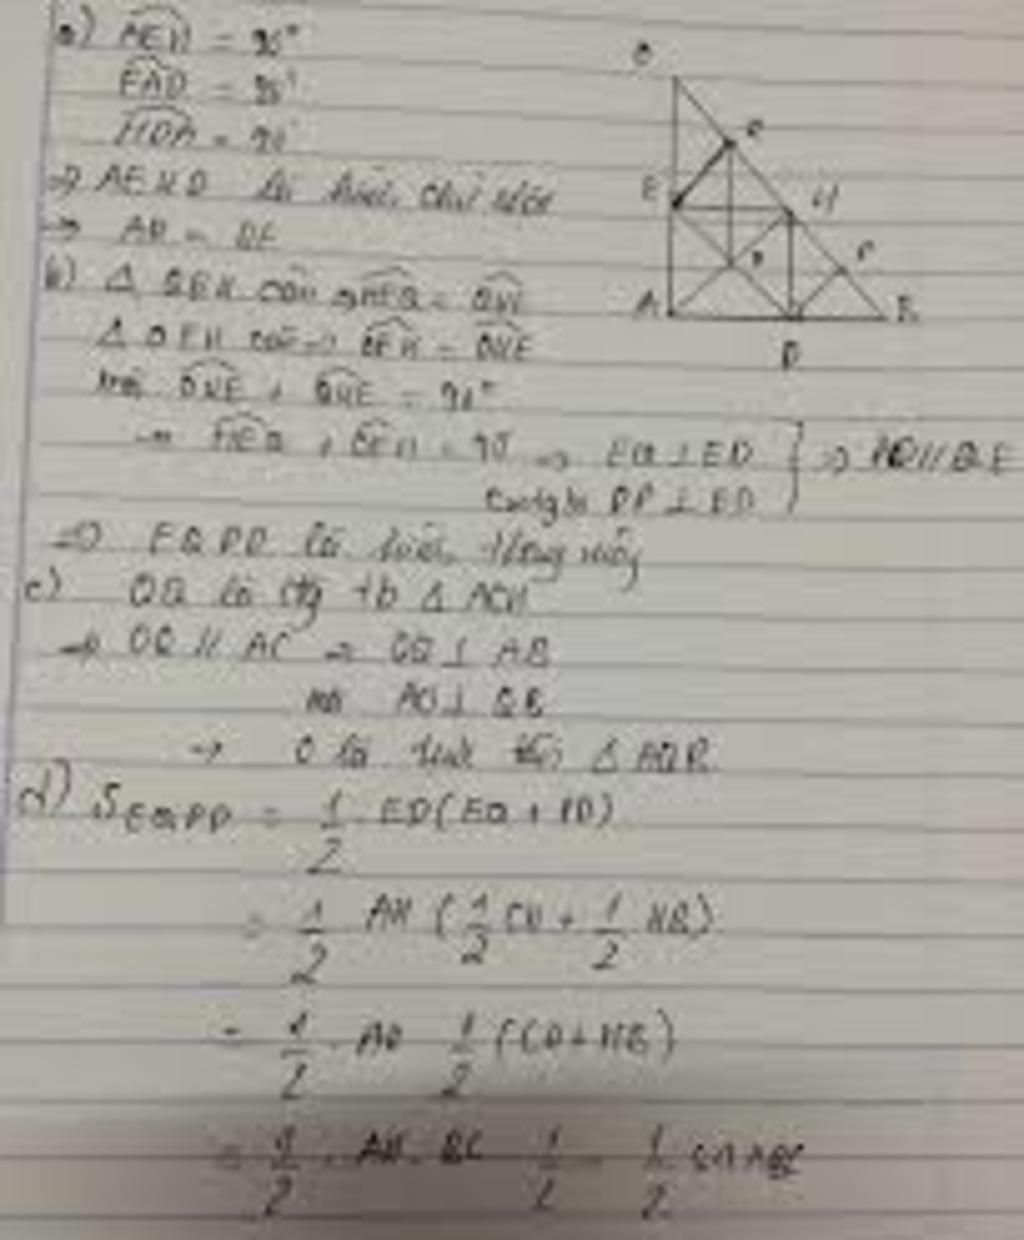 a) AEH = 90°
EAD = 90°
HDA = 90°
=> AEHD là hình chữ nhật
-> AH = DE
b) Δ QEH cân => HEQ = QHE
Δ OEH cân => OEH = OHE
mà OHE + QHE = 90°
=> HEQ + OEH = 90° => EQ ⊥ ED
DP ⊥ ED } => PD // QE
=> EQPD là hình thang vuông
c) OQ là đg tb Δ ACH
=> OQ // AC => QO ⊥ AB
mà AH ⊥ QB
-> O là trực tâm Δ AQB
d) S EQPD = 1/2 ED (EQ + PD)
= 1/2 AH (1/2 CH + 1/2 HB)
= 1/2 . AH 1/2 (CH + HB)
= 1/2 . AH . BC 1/2 = 1/2 S Δ ABC
E
H
A
B
D